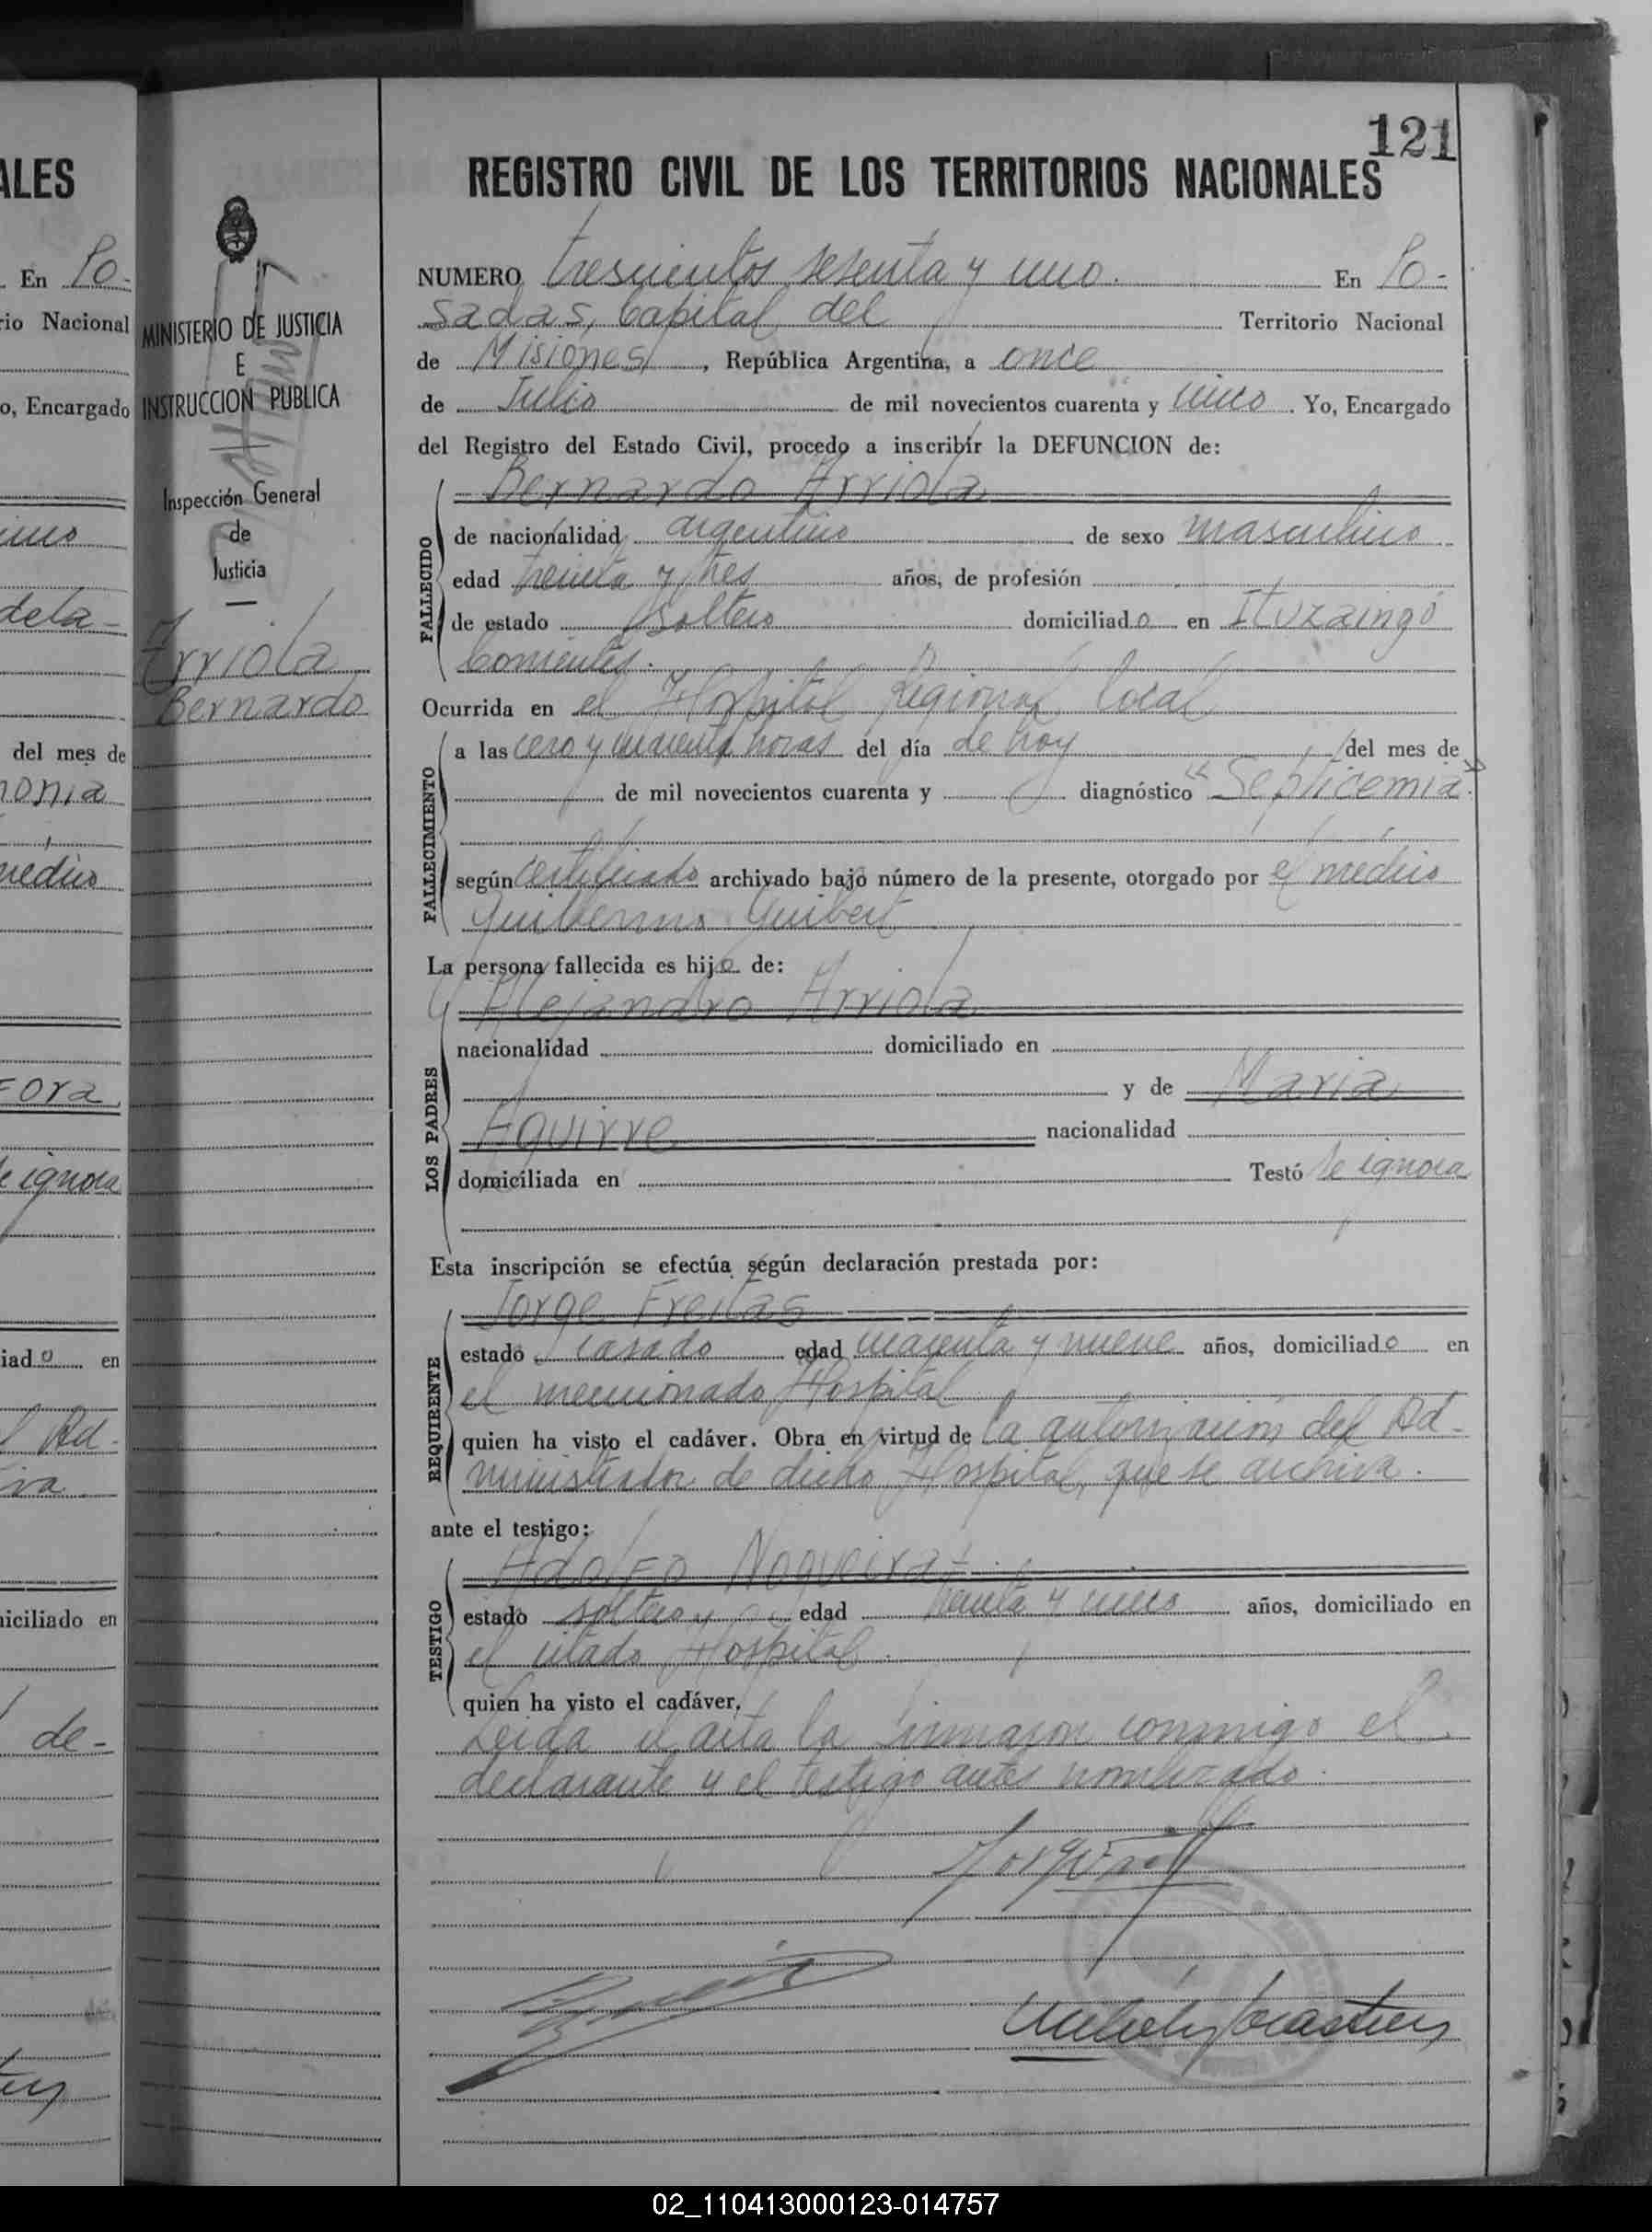 121
REGISTRO CIVIL DE LOS TERRITORIOS NACIONALES
NUMERO trescientos sesenta y uno. En Po-
sadas, Capital del Territorio Nacional
de Misiones, República Argentina, a once
de Julio de mil novecientos cuarenta y cinco. Yo, Encargado
del Registro del Estado Civil, procedo a inscribir la DEFUNCION de:
Bernardo Arriola
FALLECIDO
de nacionalidad argentino de sexo masculino
edad treinta y tres años, de profesión
de estado soltero domiciliado en Ituzaingó
Corrientes.
Ocurrida en el Hospital Regional local
FALLECIMIENTO
a las cero y cuarenta horas del día de hoy del mes de
de mil novecientos cuarenta y diagnóstico "Septicemia".
según certificado archivado bajo número de la presente, otorgado por el médico
Guillermo Guibert
La persona fallecida es hijo de:
LOS PADRES
Alejandro Arriola
nacionalidad domiciliado en
y de Maria
Aguirre nacionalidad
domiciliada en Testó se ignora
Esta inscripción se efectúa según declaración prestada por:
REQUIRENTE
Jorge Freitas
estado casado edad cuarenta y nueve años, domiciliado en
el mencionado Hospital
quien ha visto el cadáver. Obra en virtud de la autorización del Ad-
ministrador de dicho Hospital, que se archiva.
ante el testigo:
TESTIGO
Adolfo Nogueira
estado soltero edad treinta y cinco años, domiciliado en
el citado Hospital.
quien ha visto el cadáver.
Leida el acta la firmaron conmigo el
declarante y el testigo antes nombrado.
MINISTERIO DE JUSTICIA
E
INSTRUCCION PUBLICA
Inspección General
de
Justicia
Arriola
Bernardo
ALES
En Po-
rio Nacional
o, Encargado
dela-
del mes de
monia
médico
Fora
se ignora
iado en
l Ad-
iva.
niciliado en
de-
02_110413000123-014757